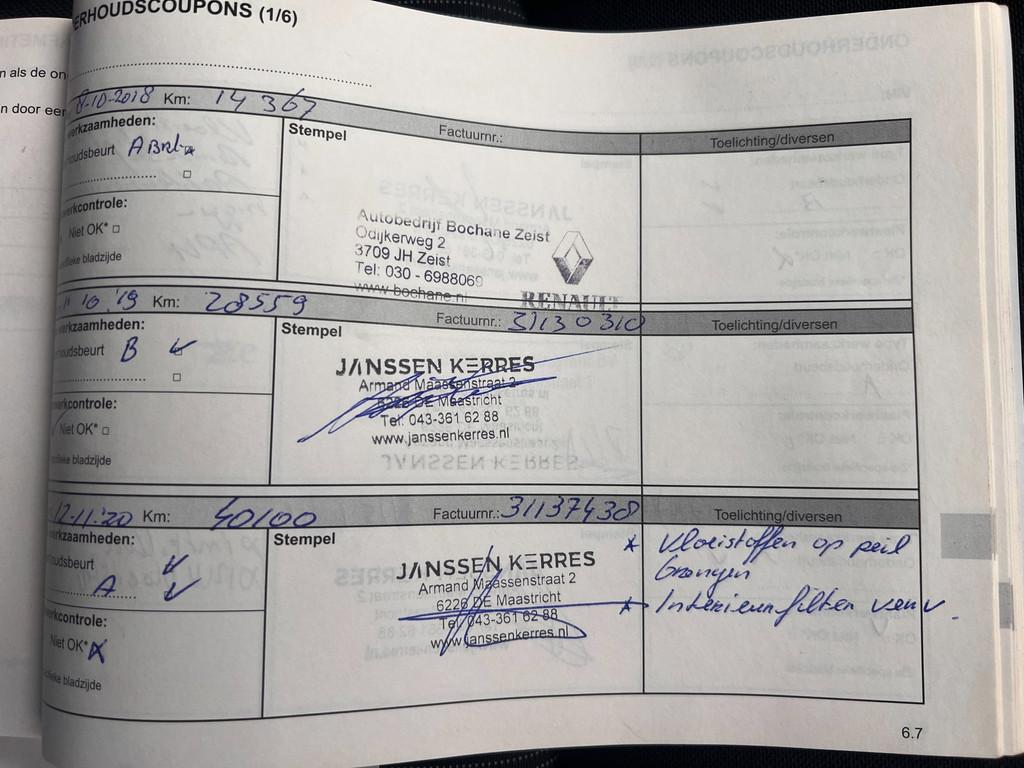 ERHOUDSCOUPONS (1/6)
n als de on
n door eer
8-10-2018 Km: 14 367
erkzaamheden:
Stempel
Factuurnr.:
Toelichting/diversen
oudsbeurt A
erkcontrole:
Niet OK*
ifieke bladzijde
Autobedrijf Bochane Zeist
Odijkerweg 2
3709 JH Zeist
Tel: 030 - 6988069
www.bochane.nl
RENAULT
10 '19 Km: 28559
Factuurnr.: 31130310
Toelichting/diversen
erkzaamheden:
Stempel
oudsbeurt B
erkcontrole:
Niet OK*
ifieke bladzijde
JANSSEN KERRES
Armand Maassenstraat 2
6226 DE Maastricht
Tel: 043-361 62 88
www.janssenkerres.nl
12-11-'20 Km: 40100
Factuurnr.: 31137438
Toelichting/diversen
erkzaamheden:
Stempel
oudsbeurt
A
erkcontrole:
Niet OK*
ifieke bladzijde
JANSSEN KERRES
Armand Maassenstraat 2
6226 DE Maastricht
Tel: 043-361 62 88
www.janssenkerres.nl
* Vloeistoffen op peil
brengen
* Interieurfilter verv.
6.7